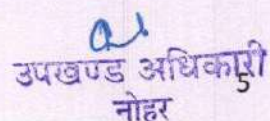 उपखण्ड अधिकारी
5
नोहर